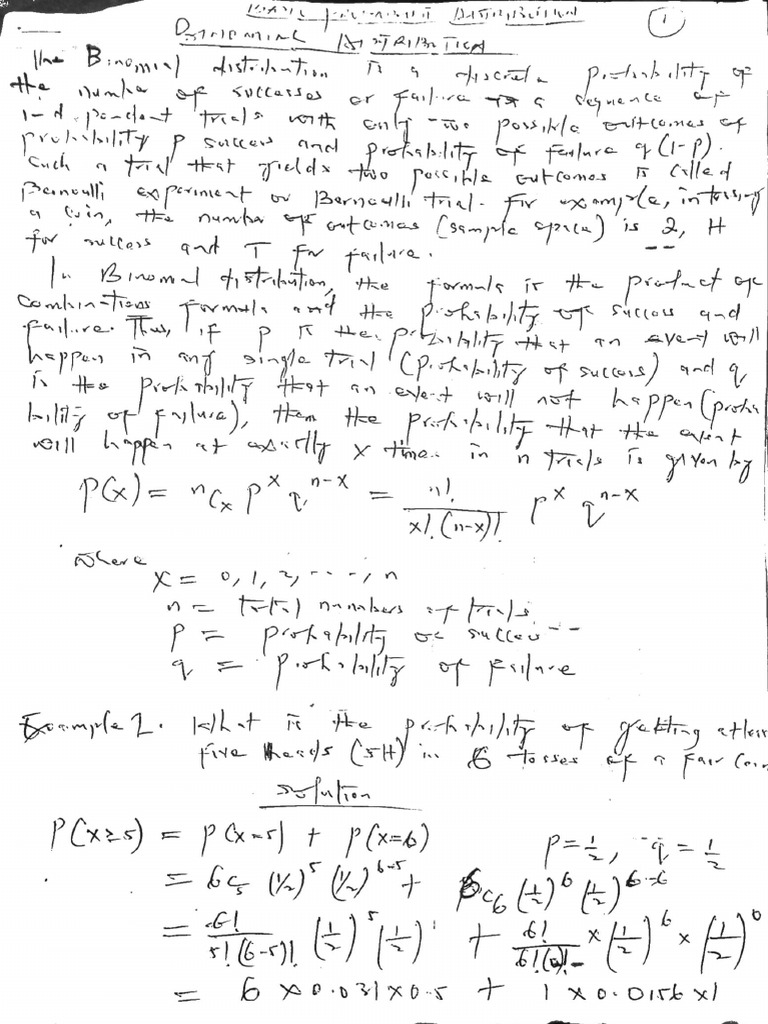 DISTRIBUTION ①
DISTRIBUTION
The Binomial distribution is a discrete probability of
the number of successes or failure a sequence of
independent trials with only two possible outcomes of
probability p success and probability of failure q (1-p).
Such a trial that yields two possible outcomes is called
Bernoulli experiment or Bernoulli trial. For example, in tossing
a coin, the number of outcomes (sample space) is 2, H
for success and T for failure.
In Binomial distribution, the formula is the product of
combinations formula and the probability of success and
failure. Thus, if p is the probability that an event will
happen in any single trial (probability of success) and q
is the probability that an event will not happen (proba
bility of failure), then the probability that the event
will happen at exactly x time in n trials is given by
P(x) = ⁿCₓ pˣ qⁿ⁻ˣ = n!/(x!(n-x)!) pˣ qⁿ⁻ˣ
where
x = 0, 1, 2, ....., n
n = total numbers of trials
p = probability of success
q = probability of failure
Example 1. What is the probability of getting atleas
five heads (5H) in 6 tosses of a fair coin
Solution
P(x≥5) = P(x=5) + P(x=6) p = 1/2, q = 1/2
= 6C₅ (1/2)⁵ (1/2)⁶⁻⁵ + 6C₆ (1/2)⁶ (1/2)⁶⁻⁶
= 6!/(5!(6-5)!) (1/2)⁵ (1/2)¹ + 6!/(6!(0)!) × (1/2)⁶ × (1/2)⁰
= 6 × 0.031 × 0.5 + 1 × 0.0156 × 1